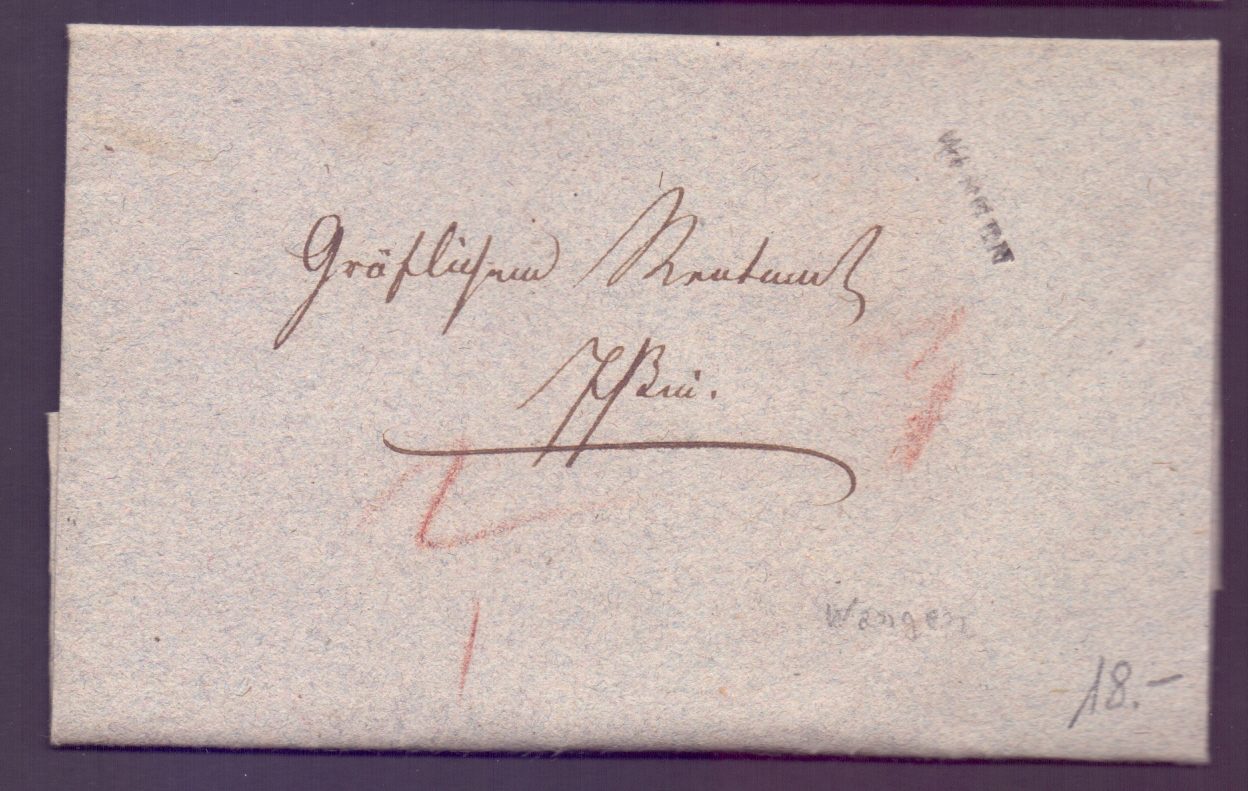 WANGEN
Gräflichem Rentamt
Wangen
18.-